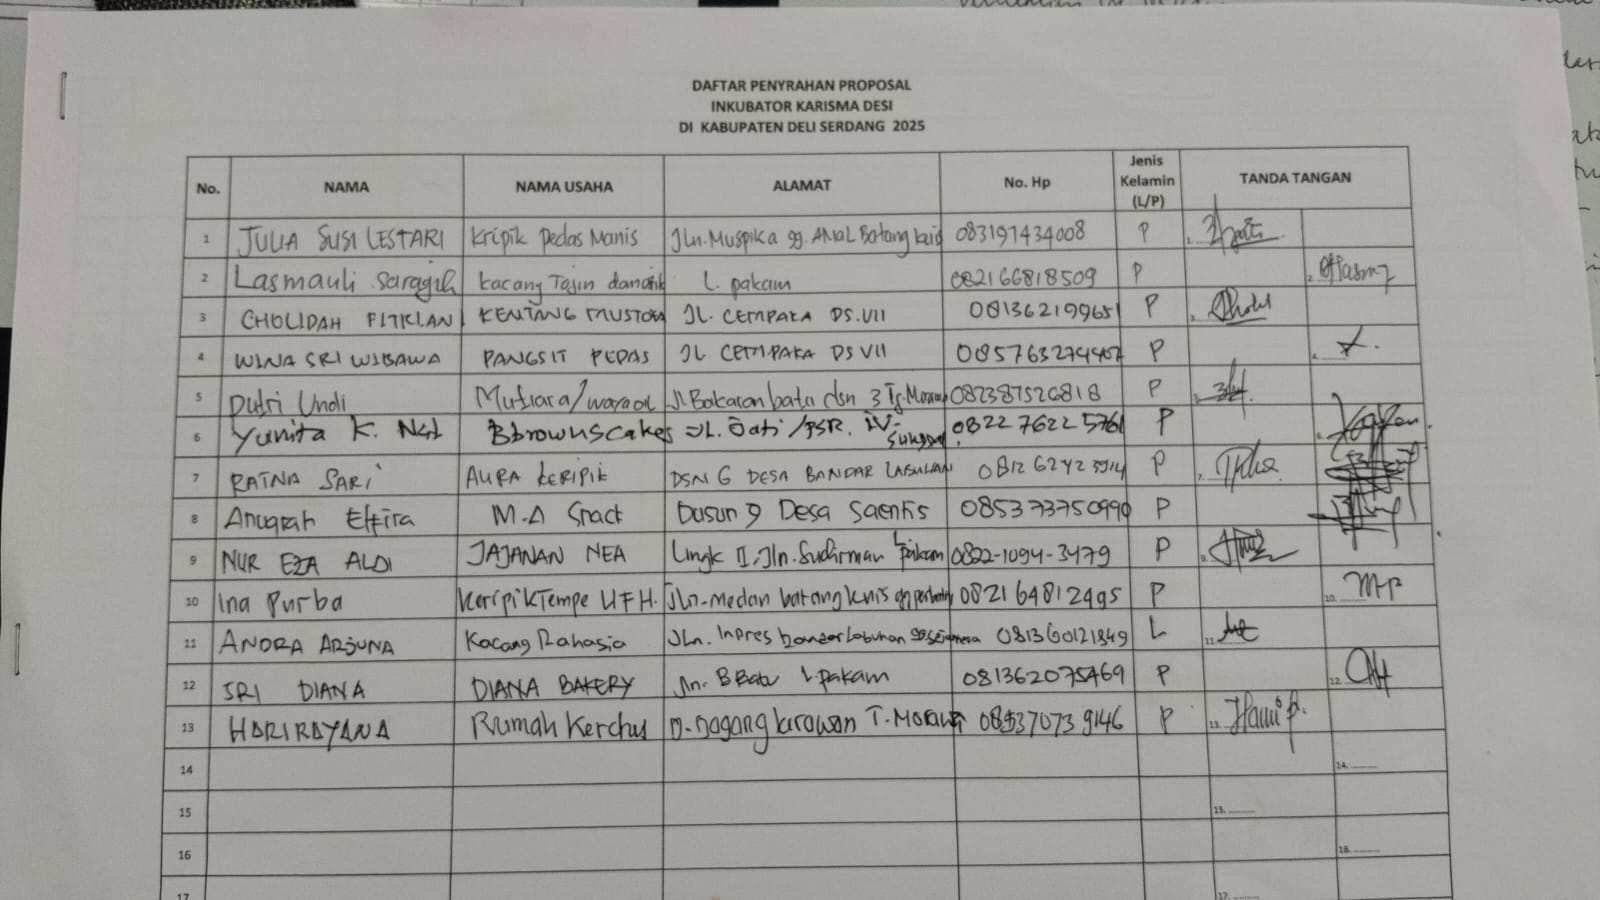 DAFTAR PENYRAHAN PROPOSAL
INKUBATOR KARISMA DESI
DI KABUPATEN DELI SERDANG 2025
No. NAMA NAMA USAHA ALAMAT No. Hp Jenis Kelamin (L/P) TANDA TANGAN
1 JULIA SUSI LESTARI Kripik Pedas Manis Jln. Muspika gg. AMAL Batang kuis 083197434008 P 1.
2 Lasmauli Saragih kacang Tojin L. pakam 082166818509 P 2.
3 CHOLIDAH FITRIAN KENTANG JL. CEMPAKA DS. VII 081362199651 P 3.
4 WINA SRI WIBAWA PANGSIT PEDAS JL CEMPAKA DS VII 085763274407 P 4.
5 Putri Undi Mutiara/ Jl Bakaran batu dsn 3 Tg. 082387526818 P
6 Yunita K. Bbrownscakes JL. Jati/PSR. IV 082276225761 P 6.
7 RATNA SARI AURA KERIPIK DSN 6 DESA BANDAR LABUHAN P 7.
8 Anugrah Elfira M.A Snack Dusun 9 Desa Saentis 085373750990 P
9 NUR EZA ALDI JAJANAN NEA Lingk II, Jln. Sudirman L pakam 0822-1094-3479 P 9.
10 Ina Purba KeripikTempe UFH. Jln-Medan batangkuis gg 082164812495 P 10.
11 ANDRA ARJUNA Kacang Rahasia JLn. Inpres bandar Labuhan 081360121849 L 11.
12 SRI DIANA DIANA BAKERY Jln. B Batu L. pakam 081362075469 P 12.
13 HARIRAYANA Rumah D. Dagang Kerawan T. Morawa 085370739146 P 13.
14 14. ..........
15 15. ..........
16 16. ..........
17 17. ..........